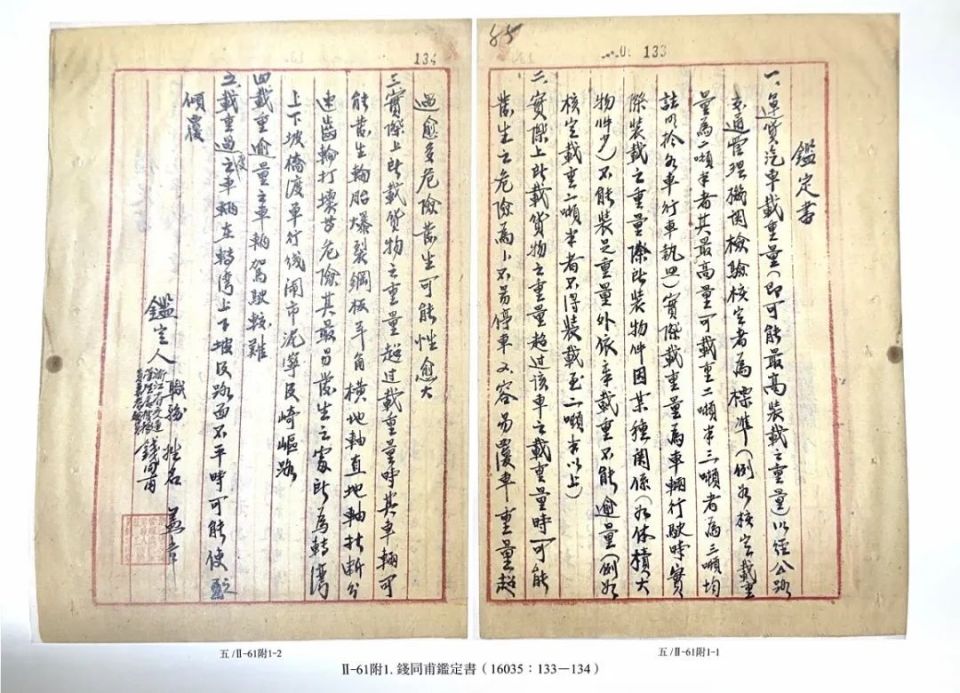 85
133
鑑定書
一、運貨汽車載重量（即可能最高裝載之重量）以經公路
交通管理機関檢驗核定者為標準（例如核定載重
量為二噸半者其最高量可載重二噸半三噸者為三噸均
註明於各車行車執照）實際載重量為車輛行駛時實
際裝載之重量際此裝物件因某種関係（如体積大
物件少）不能裝足重量外依章載重不能逾量（例如
核定載重二噸半者不得裝載至二噸半以上）
二、實際上此載貨物之重量超过該車之載重量時可能
發生之危險為小不易停車又容易覆車重量超
134
過愈多危險發生可能性愈大
三、實際上此載貨物之重量超过載重量時其車輛可
能發生輪胎爆裂鋼板羊角橫地軸直地軸折斷分
速齒輪打壞等危險其最易發生之處所為轉灣
上下坡橋渡單行线鬧市泥寧及崎嶇路
四載重逾量之車輛駕駛較難
五、載重過度之車輛在轉灣上下坡及路面不平時可能使
傾覆
鑑定人 職務 姓名 蓋章
錢同甫
五/Ⅱ-61附1-2
五/Ⅱ-61附1-1
Ⅱ-61附1. 錢同甫鑑定書（16035：133—134）